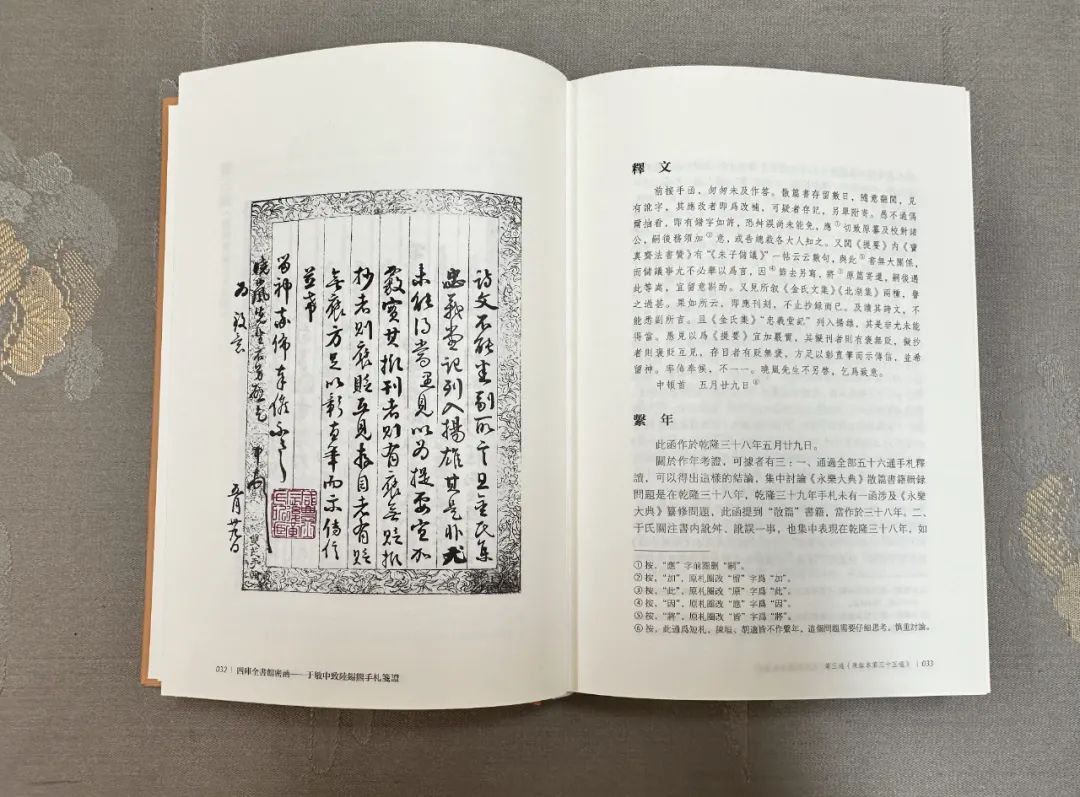 詩文不能悉副所言且金氏集
忠義堂記列入揚雄其是非尤
未能得當愚見以为提要宜加
覈實其擬刊者則有褒無貶擬
抄者則褒貶互見存目者有貶
無褒方足以彰直筆而示傳信
並希
留神率佈奉候不一一
曉嵐先生不另啟乞
为致意
中頓首
五月廿九日
032 | 四庫全書館密函——于敏中致陸錫熊手札箋證
釋 文
前接手函,匆匆未及作答。散篇書存留數日,隨意翻閱,見
有訛字,其應改者即爲改補,可疑者存記,另單附寄。愚不過偶
爾抽看,即有錯字如許,恐舛誤尚未能免,應①切致原纂及校對諸
公,嗣後務須加②意,或告總裁各大人知之。又閱《提要》內《寶
真齋法書贊》有“《朱子儲議》”一帖云云數句,與此③書無大關係,
而儲議事尤不必舉以爲言,因④節去另寫,將⑤原篇寄還,嗣後遇
此等處,宜留意斟酌。又見所叙《金氏文集》《北湖集》兩種,譽
之過甚。果如所云,即應刊刻,不止抄録而已。及讀其詩文,不
能悉副所言。且《金氏集》“忠義堂記”列入揚雄,其是非尤未能
得當。愚見以爲《提要》宜加覈實,其擬刊者則有褒無貶,擬抄
者則褒貶互見,存目者有貶無褒,方足以彰直筆而示傳信,並希
留神。率佈奉候,不一一。曉嵐先生不另啓,乞爲致意。
中頓首 五月廿九日⑥
繫 年
此函作於乾隆三十八年五月廿九日。
關於作年考證,可據者有三:一、通過全部五十六通手札釋
讀,可以得出這樣的結論,集中討論《永樂大典》散篇書籍輯録
問題是在乾隆三十八年,乾隆三十九年手札未有一函涉及《永樂
大典》纂修問題,此函提到“散篇”書籍,當作於三十八年。二、
于氏關注書内訛舛、訛誤一事,也集中表現在乾隆三十八年,如
①按,“應”字前圈删“嗣”。
②按,“加”,原札圈改“留”字爲“加”。
③按,“此”,原札圈改“原”字爲“此”。
④按,“因”,原札圈改“應”字爲“因”。
⑤按,“將”,原札圈改“皆”字爲“將”。
⑥按,此通爲短札,陳垣、胡適皆不作繫年,這個問題需要仔細思考,慎重討論。
第三通(陳垣本第三十五通) | 033